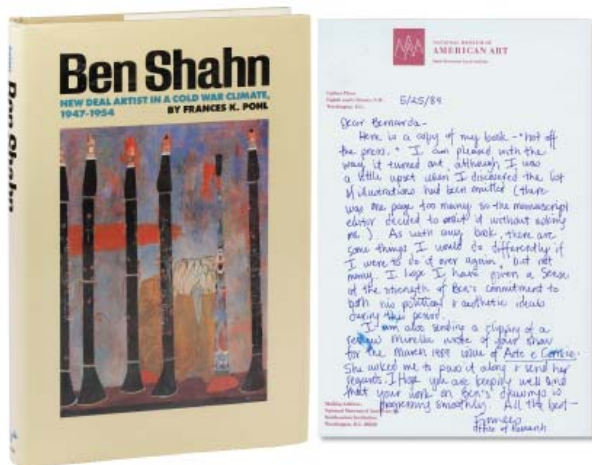 Ben Shahn
Ben Shahn
NEW DEAL ARTIST IN A COLD WAR CLIMATE,
1947-1954
BY FRANCES K. POHL
NATIONAL MUSEUM OF
AMERICAN ART
5/25/89
Dear Bernarda-
Here is a copy of my book - "hot off
the press." I am pleased with the
way it turned out although I was
a little upset when I discovered the list
of illustrations had been omitted (there
was one page too many so the manuscript
editor decided to omit it without asking
me.) As with any book, there are
some things I would do differently if
I were to do it over again, but not
many. I hope I have given a sense
of the strength of Ben's commitment to
both his political & aesthetic ideas
during this period.
I am also sending a clipping of a
review Mirella wrote of your show
for the March 1989 issue of Arte e Cornice.
She asked me to pass it along & send her
regards. I hope you are keeping well and
that your work on Ben's drawings is
progressing smoothly. All the best-
Frances
Office of Research
Mailing Address
National Museum of American Art
Smithsonian Institution
Washington, D.C. 20560